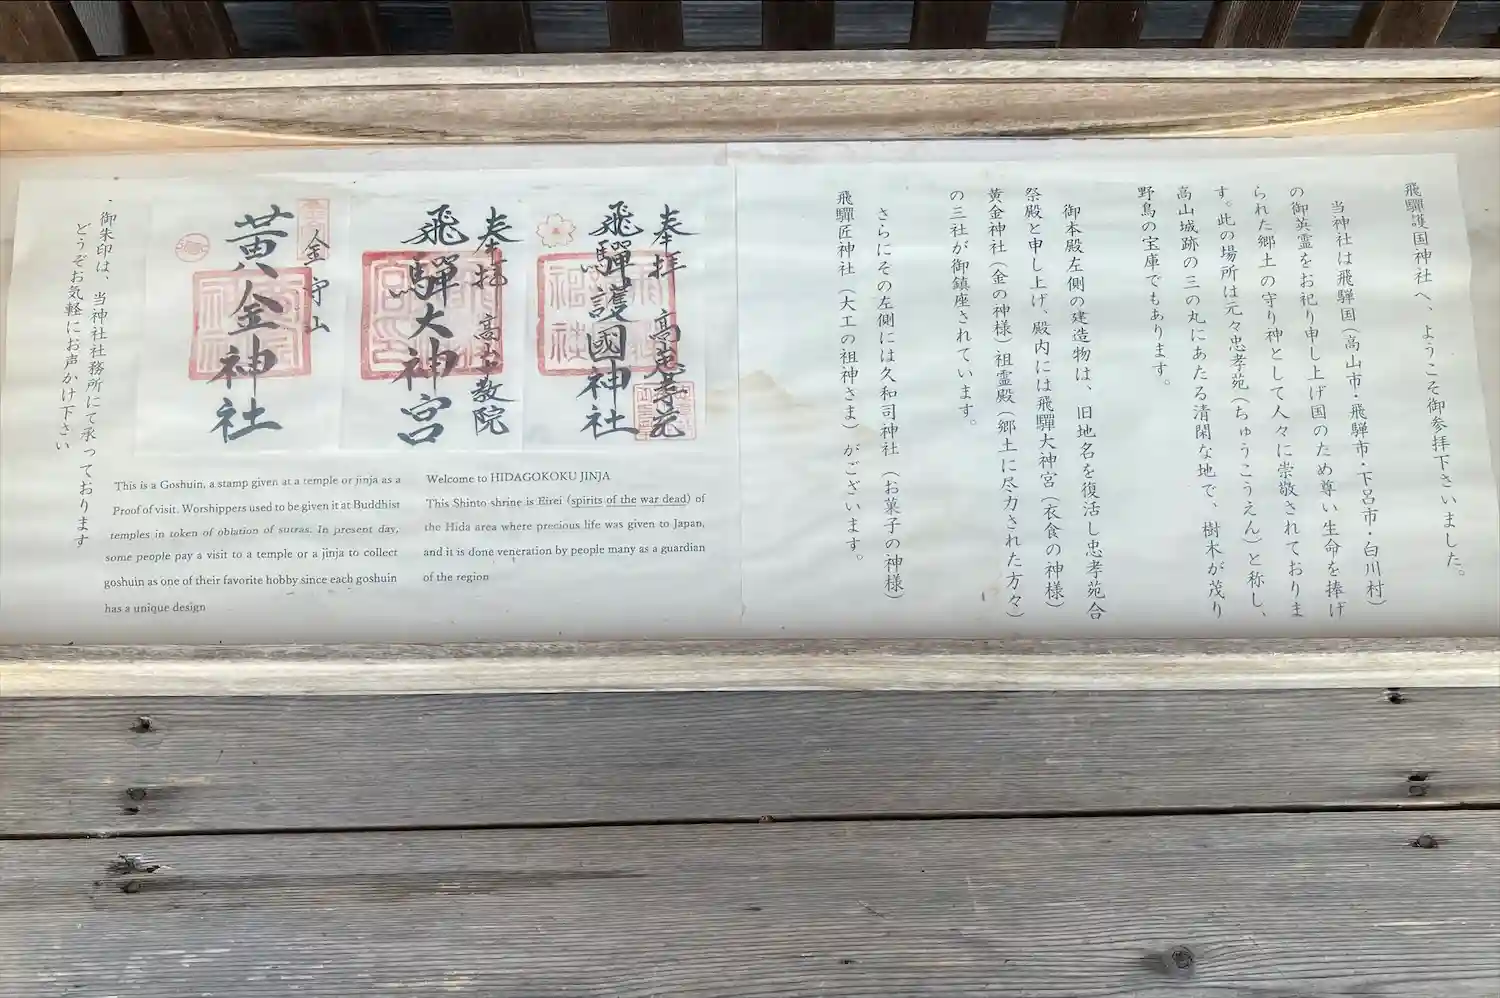 飛騨護国神社へ、ようこそ御参拝下さいました。
当神社は飛騨国（高山市・飛騨市・下呂市・白川村）
の御英霊をお祀り申し上げ国のため尊い生命を捧げ
られた郷土の守り神として人々に崇敬されておりま
す。此の場所は元々忠孝苑（ちゅうこうえん）と称し、
高山城跡の三の丸にあたる清閑な地で、樹木が茂り
野鳥の宝庫でもあります。
御本殿左側の建造物は、旧地名を復活し忠孝苑合
祭殿と申し上げ、殿内には飛騨大神宮（衣食の神様）
黄金神社（金の神様）祖霊殿（郷土に尽力された方々）
の三社が御鎮座されています。
さらにその左側には久和司神社（お菓子の神様）
飛騨匠神社（大工の祖神さま）がございます。
奉拝 高山忠孝苑
飛驒護國神社
奉拝 高山教院
飛驒大神宮
金守山
黄金神社
Welcome to HIDAGOKOKU JINJA
This Shinto shrine is Eirei (spirits of the war dead) of
the Hida area where precious life was given to Japan,
and it is done veneration by people many as a guardian
of the region
This is a Goshuin, a stamp given at a temple or jinja as a
Proof of visit. Worshippers used to be given it at Buddhist
temples in token of oblation of sutras. In present day,
some people pay a visit to a temple or a jinja to collect
goshuin as one of their favorite hobby since each goshuin
has a unique design
・御朱印は、当神社社務所にて承っております
どうぞお気軽にお声かけ下さい